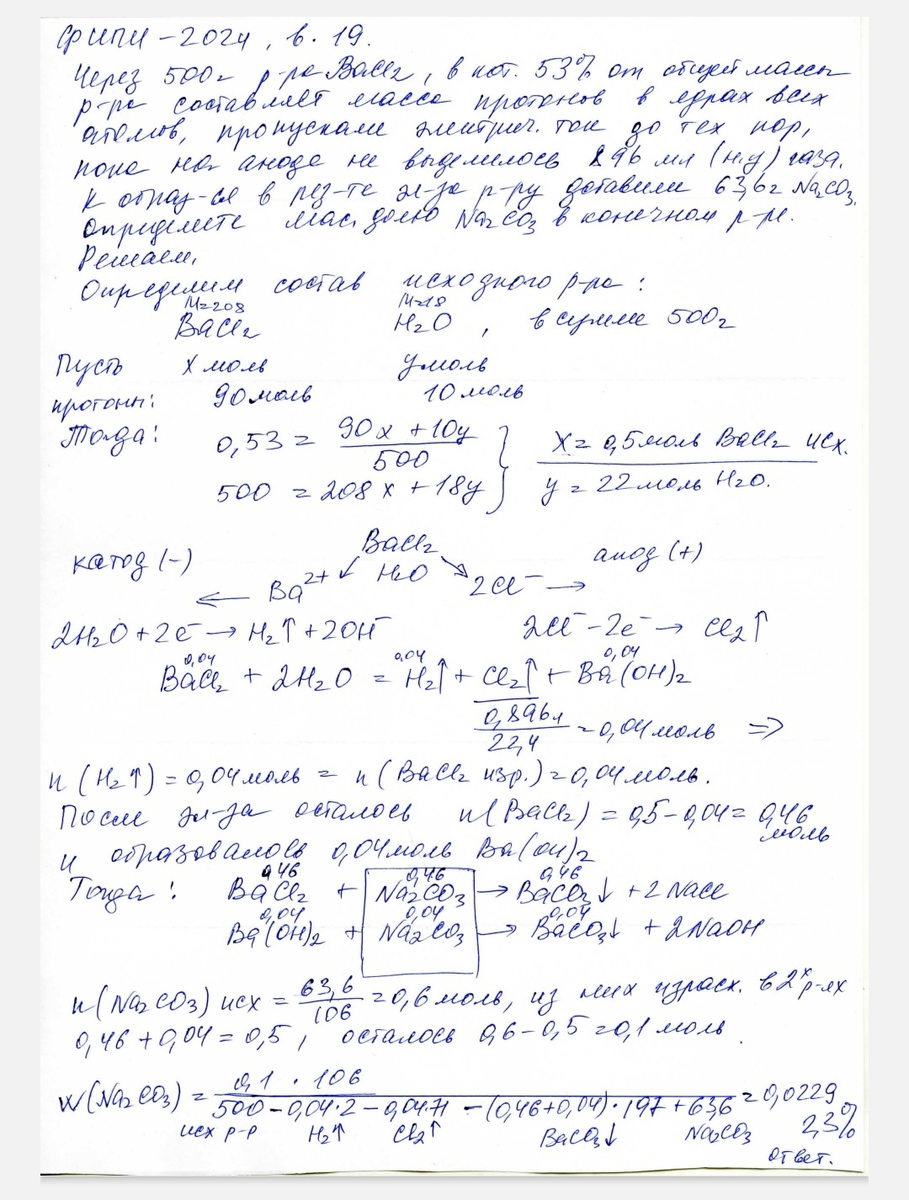 ФИПИ - 2024, в. 19.
Через 500г р-ра BaCl₂, в кот. 53% от общей массы
р-ра составляет масса протонов в ядрах всех
атомов, пропускали электрич. ток до тех пор,
пока на аноде не выделилось 896 мл (н.у) газа.
К образ-ся в рез-те эл-за р-ру добавили 63,6г Na₂CO₃.
Определите мас. долю Na₂CO₃ в конечном р-ре.
Решаем.
Определим состав исходного р-ра:
M=208 M=18
BaCl₂ H₂O, в сумме 500г
Пусть x моль y моль
протоны: 90 моль 10 моль
Тогда: 0,53 = (90x + 10y)/500
500 = 208x + 18y
x = 0,5 моль BaCl₂ исх.
y = 22 моль H₂O.
катод (-) BaCl₂ анод (+)
← Ba²⁺ ↙ H₂O ↘ 2Cl⁻ →
2H₂O + 2e⁻ → H₂↑ + 2OH⁻ 2Cl⁻ - 2e⁻ → Cl₂↑
0,04 0,04 0,04
BaCl₂ + 2H₂O = H₂↑ + Cl₂↑ + Ba(OH)₂
0,896л/22,4 = 0,04 моль ⇒
n(H₂↑) = 0,04 моль = n(BaCl₂ изр.) = 0,04 моль.
После эл-за осталось n(BaCl₂) = 0,5 - 0,04 = 0,46 моль
и образовалось 0,04 моль Ba(OH)₂
0,46 0,46 0,46
Тогда: BaCl₂ + Na₂CO₃ → BaCO₃↓ + 2NaCl
0,04 0,04 0,04
Ba(OH)₂ + Na₂CO₃ → BaCO₃↓ + 2NaOH
n(Na₂CO₃) исх = 63,6/106 = 0,6 моль, из них израсх. в 2ˣ р-ях
0,46 + 0,04 = 0,5, осталось 0,6 - 0,5 = 0,1 моль.
w(Na₂CO₃) = 0,1 · 106/(500 - 0,04·2 - 0,04·71 - (0,46+0,04)·197 + 63,6) = 0,0229
исх р-р H₂↑ Cl₂↑ BaCO₃↓ Na₂CO₃ 2,3%
ответ.